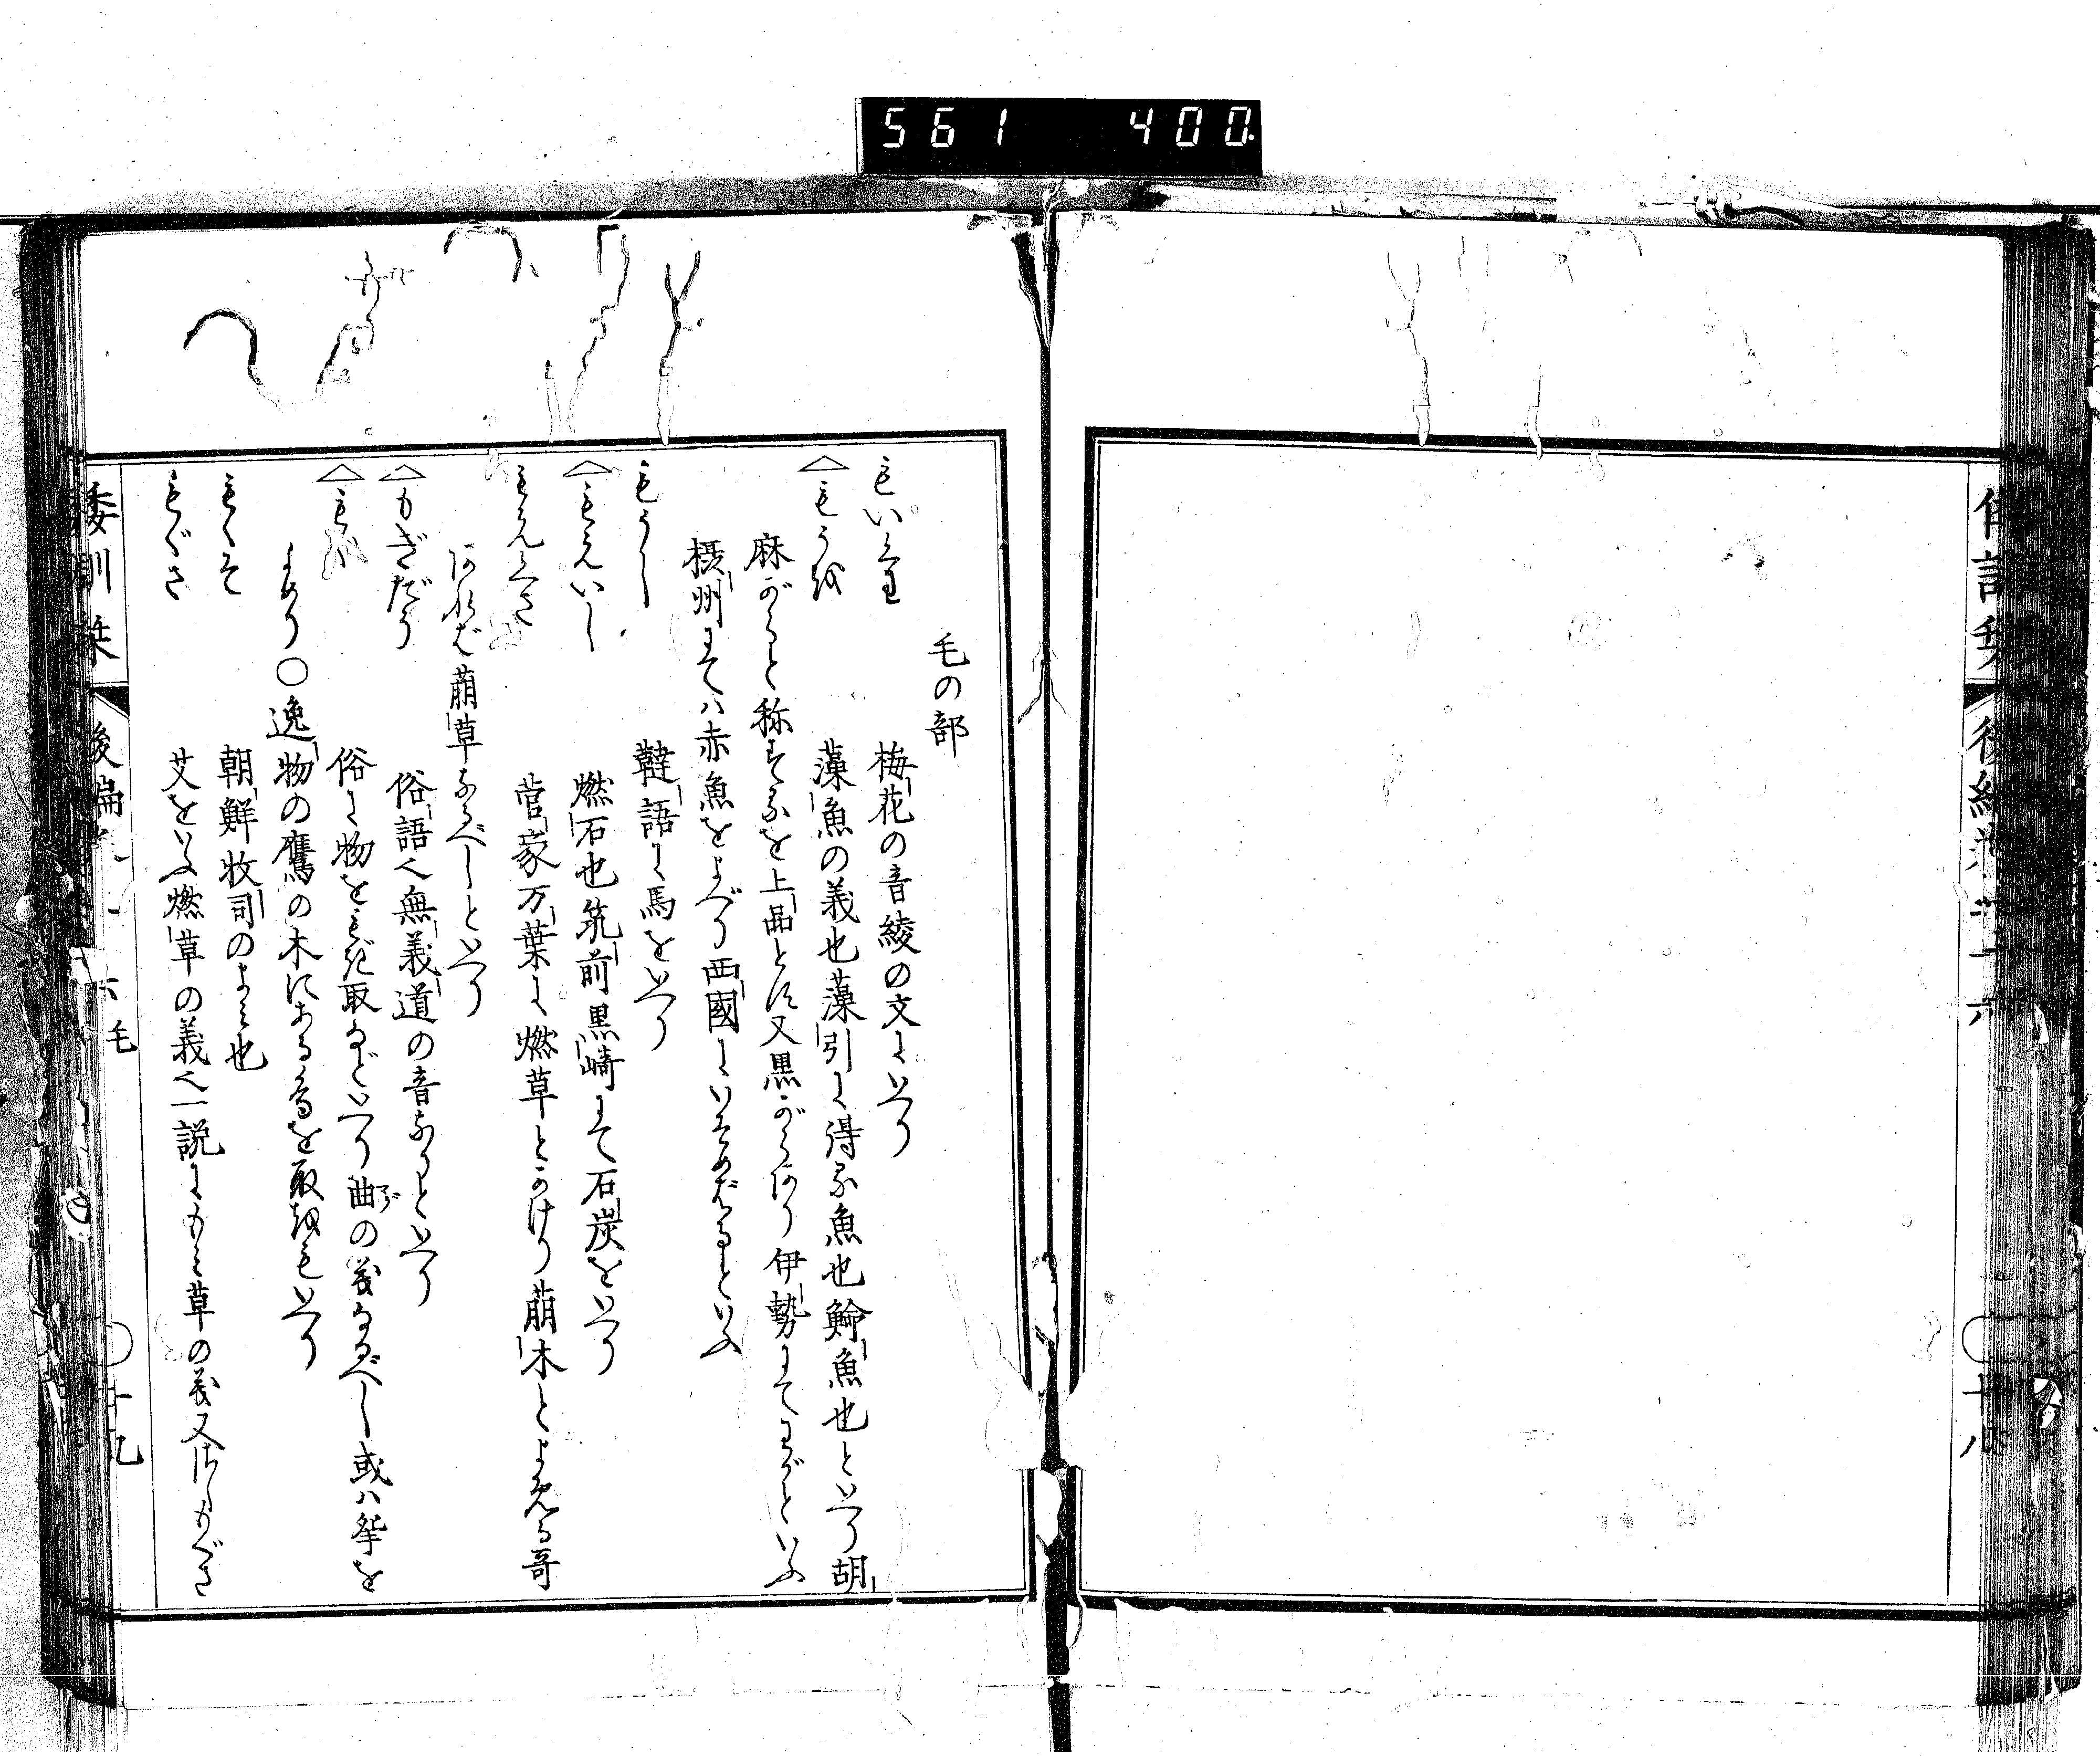 561 400
毛の部
もいくわ 梅花の音綾の文にいへり
△もうを 藻魚の義也藻引に得る魚也鯩魚也といへり胡
麻がらと称するを上品とす又黒がらあり伊勢にてわがといふ
摂州にてハ赤魚をよべり西國にいそめばるといふ
もうし 韃語に馬をいへり
△もえいし 燃石也筑前黒崎にて石炭をいへり
もえくさ 菅家万葉に燃草とかけり萠木とよめる哥
あれば萠草なるべしといへり
△もぎだう 俗語也無義道の音なりといへり
俗に物をもぎ取などいへり曲の義なるべし或ハ挙を
よめり○逸物の鷹の木にある鳥を取をもいへり
もくそ 朝鮮牧司のよミ也
もぐさ 艾をいふ燃草の義也一説にもミ草の義又さしもぐさ
倭訓栞 後編 十六 毛 ○十九
後編 十六 ○十八